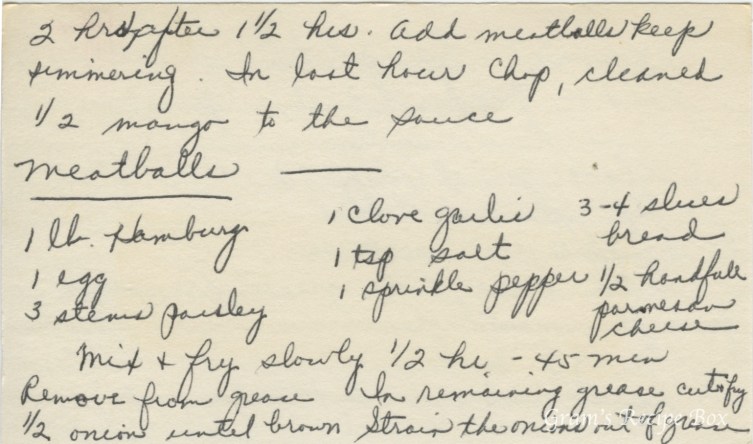 2 hrs after 1 1/2 hrs. add meatballs keep
simmering. In last hour Chop, cleaned
1/2 mango to the sauce
Meatballs
1 lb. Hamburg
1 clove garlic
3-4 slices
bread
1 egg
1 tsp salt
3 stems parsley
1 sprinkle pepper
1/2 handfull
parmesan
cheese
Mix + fry slowly 1/2 hr - 45 min
Remove from grease In remaining grease cut + fry
1/2 onion until brown Strain the onions out of grease
Gram's Recipe Box